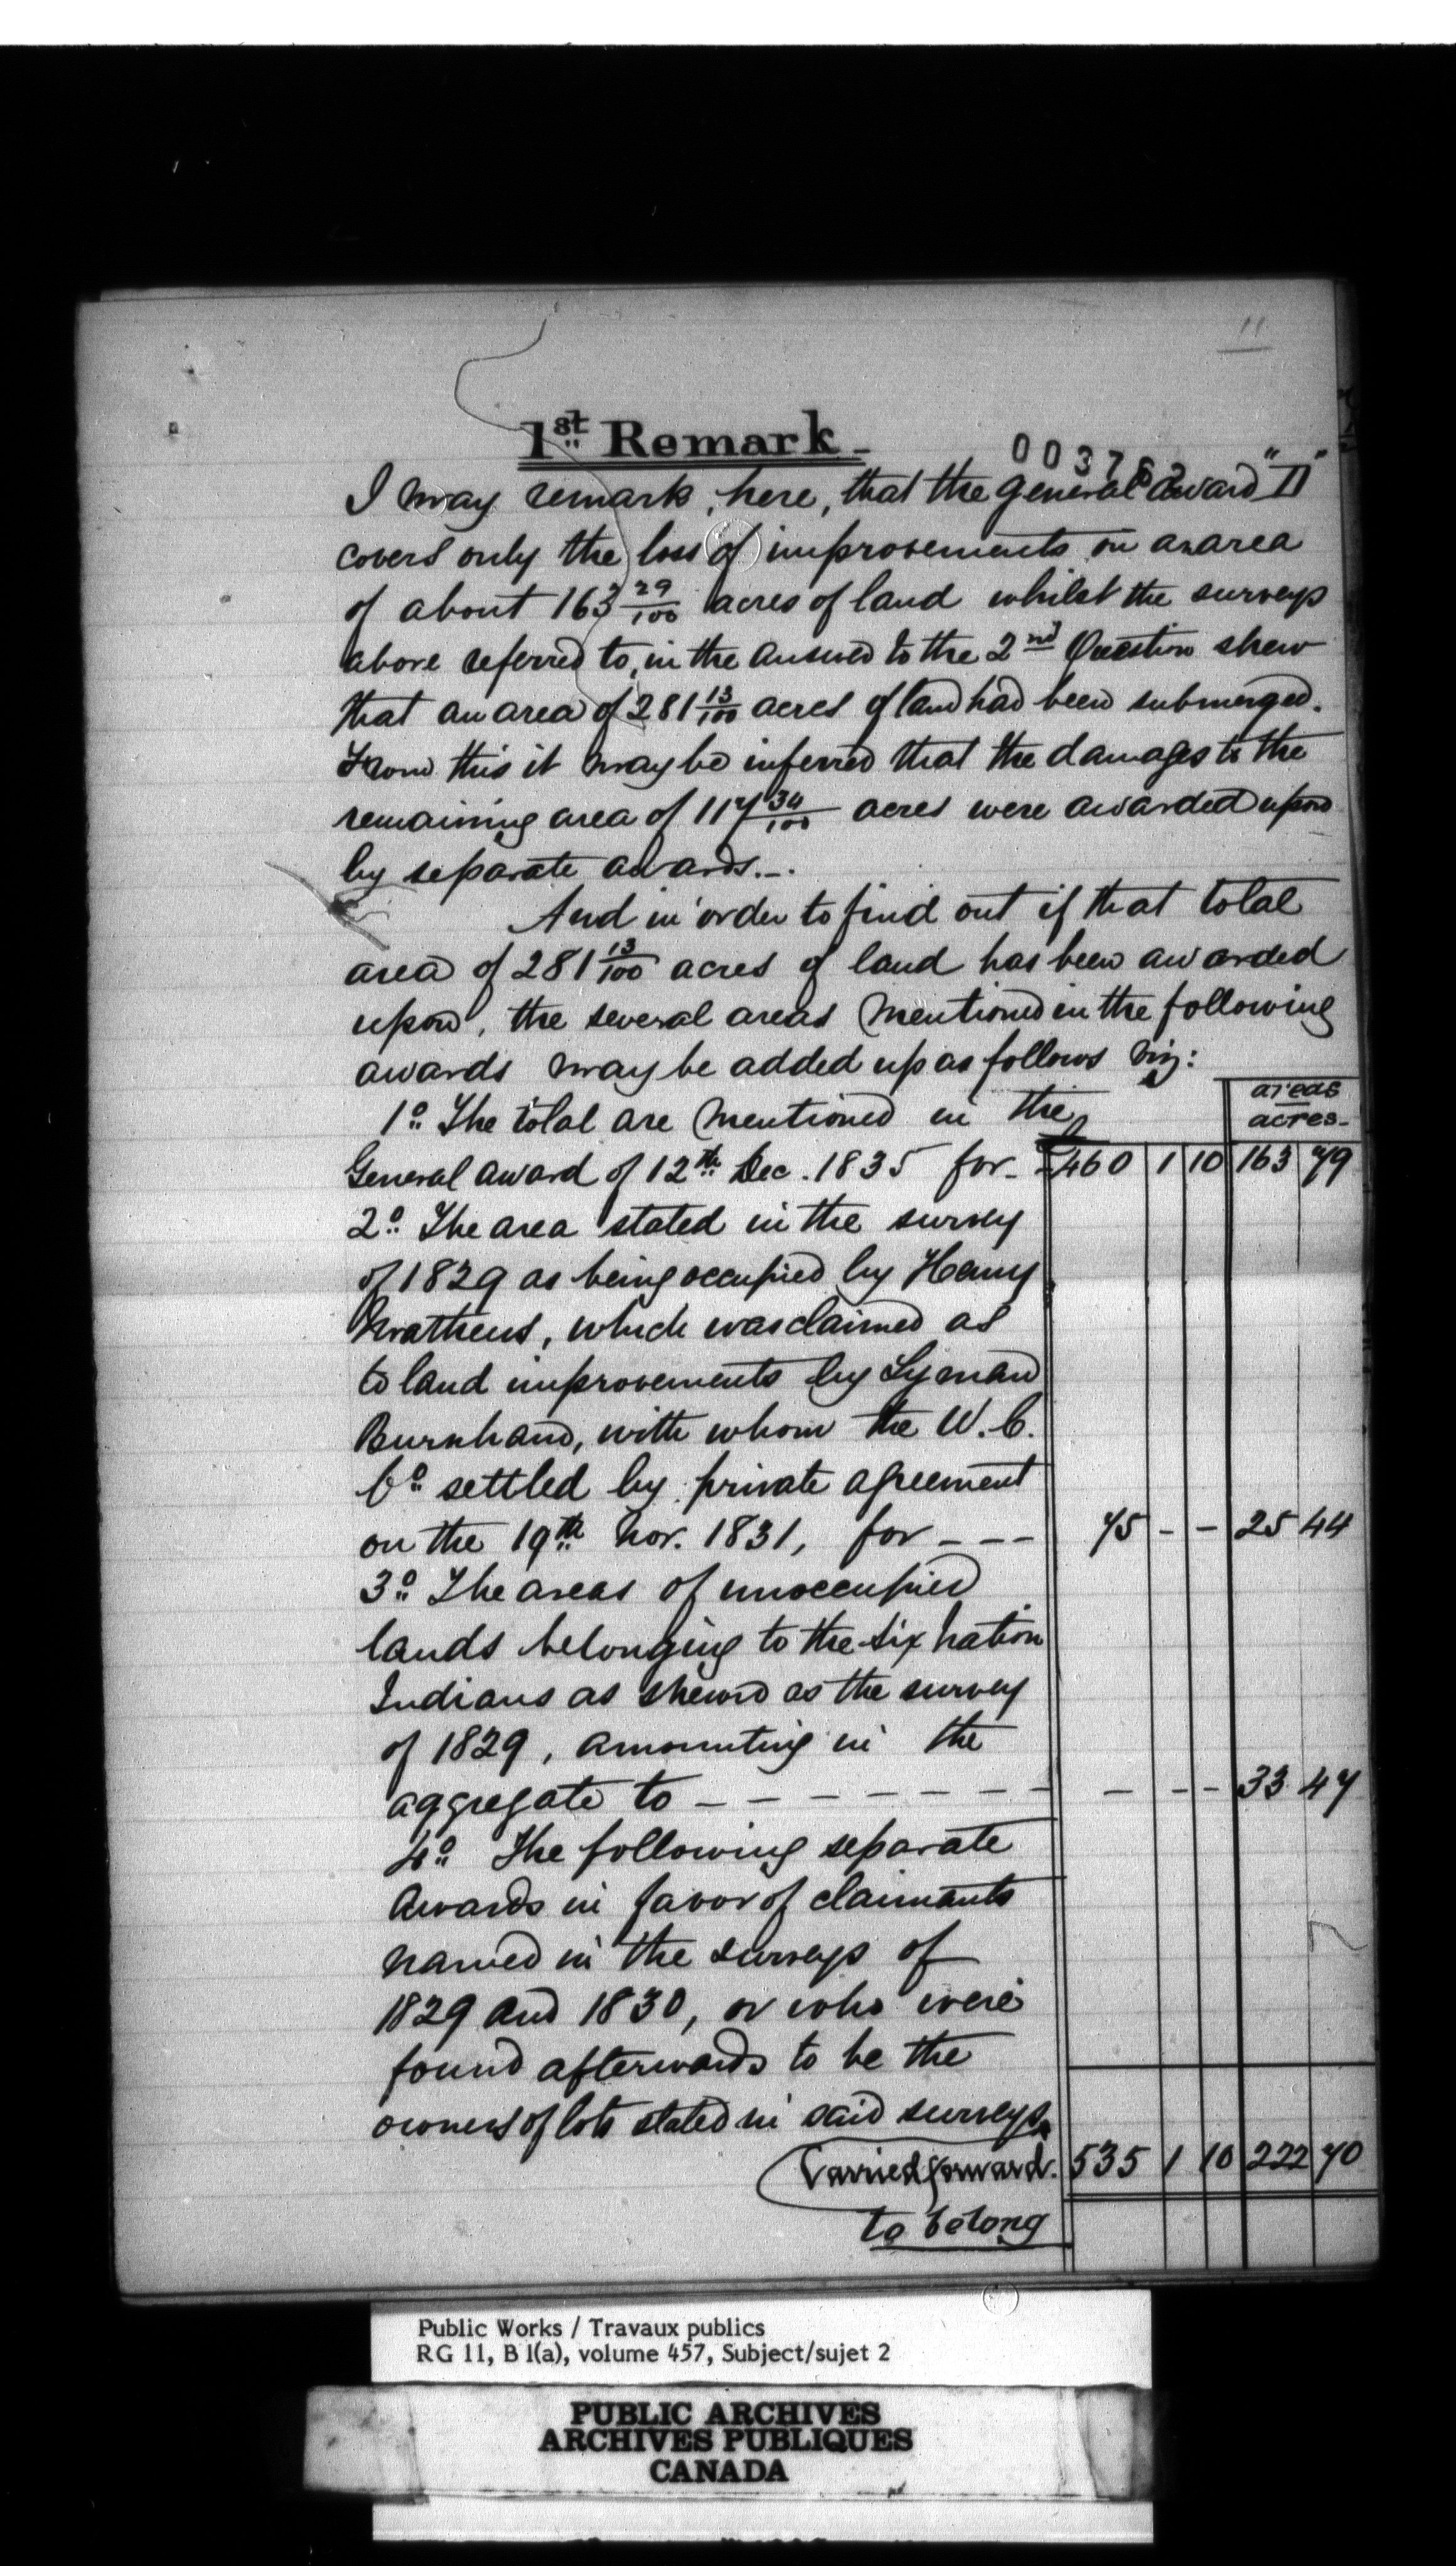 11
1st Remark -
003762
I may remark, here, that the general award "D"
covers only the loss of improvements on an area
of about 163 29/100 acres of land whilst the surveys
above referred to, in the answer to the 2nd Question shew
that an area of 281 13/100 acres of land had been submerged.
From this it may be inferred that the damages to the
remaining area of 117 34/100 acres were awarded upon
by separate awards.-.
And in order to find out if that total
area of 281 13/100 acres of land has been awarded
upon, the several areas mentioned in the following
awards may be added up as follows viz:
areas
acres-
1o The total are mentioned in the
General award of 12th Dec. 1835 for - £ 460 1 10 163 79
2o The area stated in the survey
of 1829 as being occupied by Henry
Mathews, which was claimed as
to land improvements by Lyman
Burnham, with whom the W. C.
Co settled by private agreement
on the 19th Nov. 1831, for - - - 75 - - 25 44
3o The areas of unoccupied
lands belonging to the Six Nation
Indians as shewn as the survey
of 1829, amounting in the
aggregate to - - - - - - - - - - 33 47
4o The following separate
Awards in favor of claimants
named in the surveys of
1829 and 1830, or who were
found afterwards to be the
owners of lots stated in said surveys
Carried forward. 535 1 10 222 70
to belong
Public Works / Travaux publics
RG 11, B 1(a), volume 457, Subject/sujet 2
PUBLIC ARCHIVES
ARCHIVES PUBLIQUES
CANADA